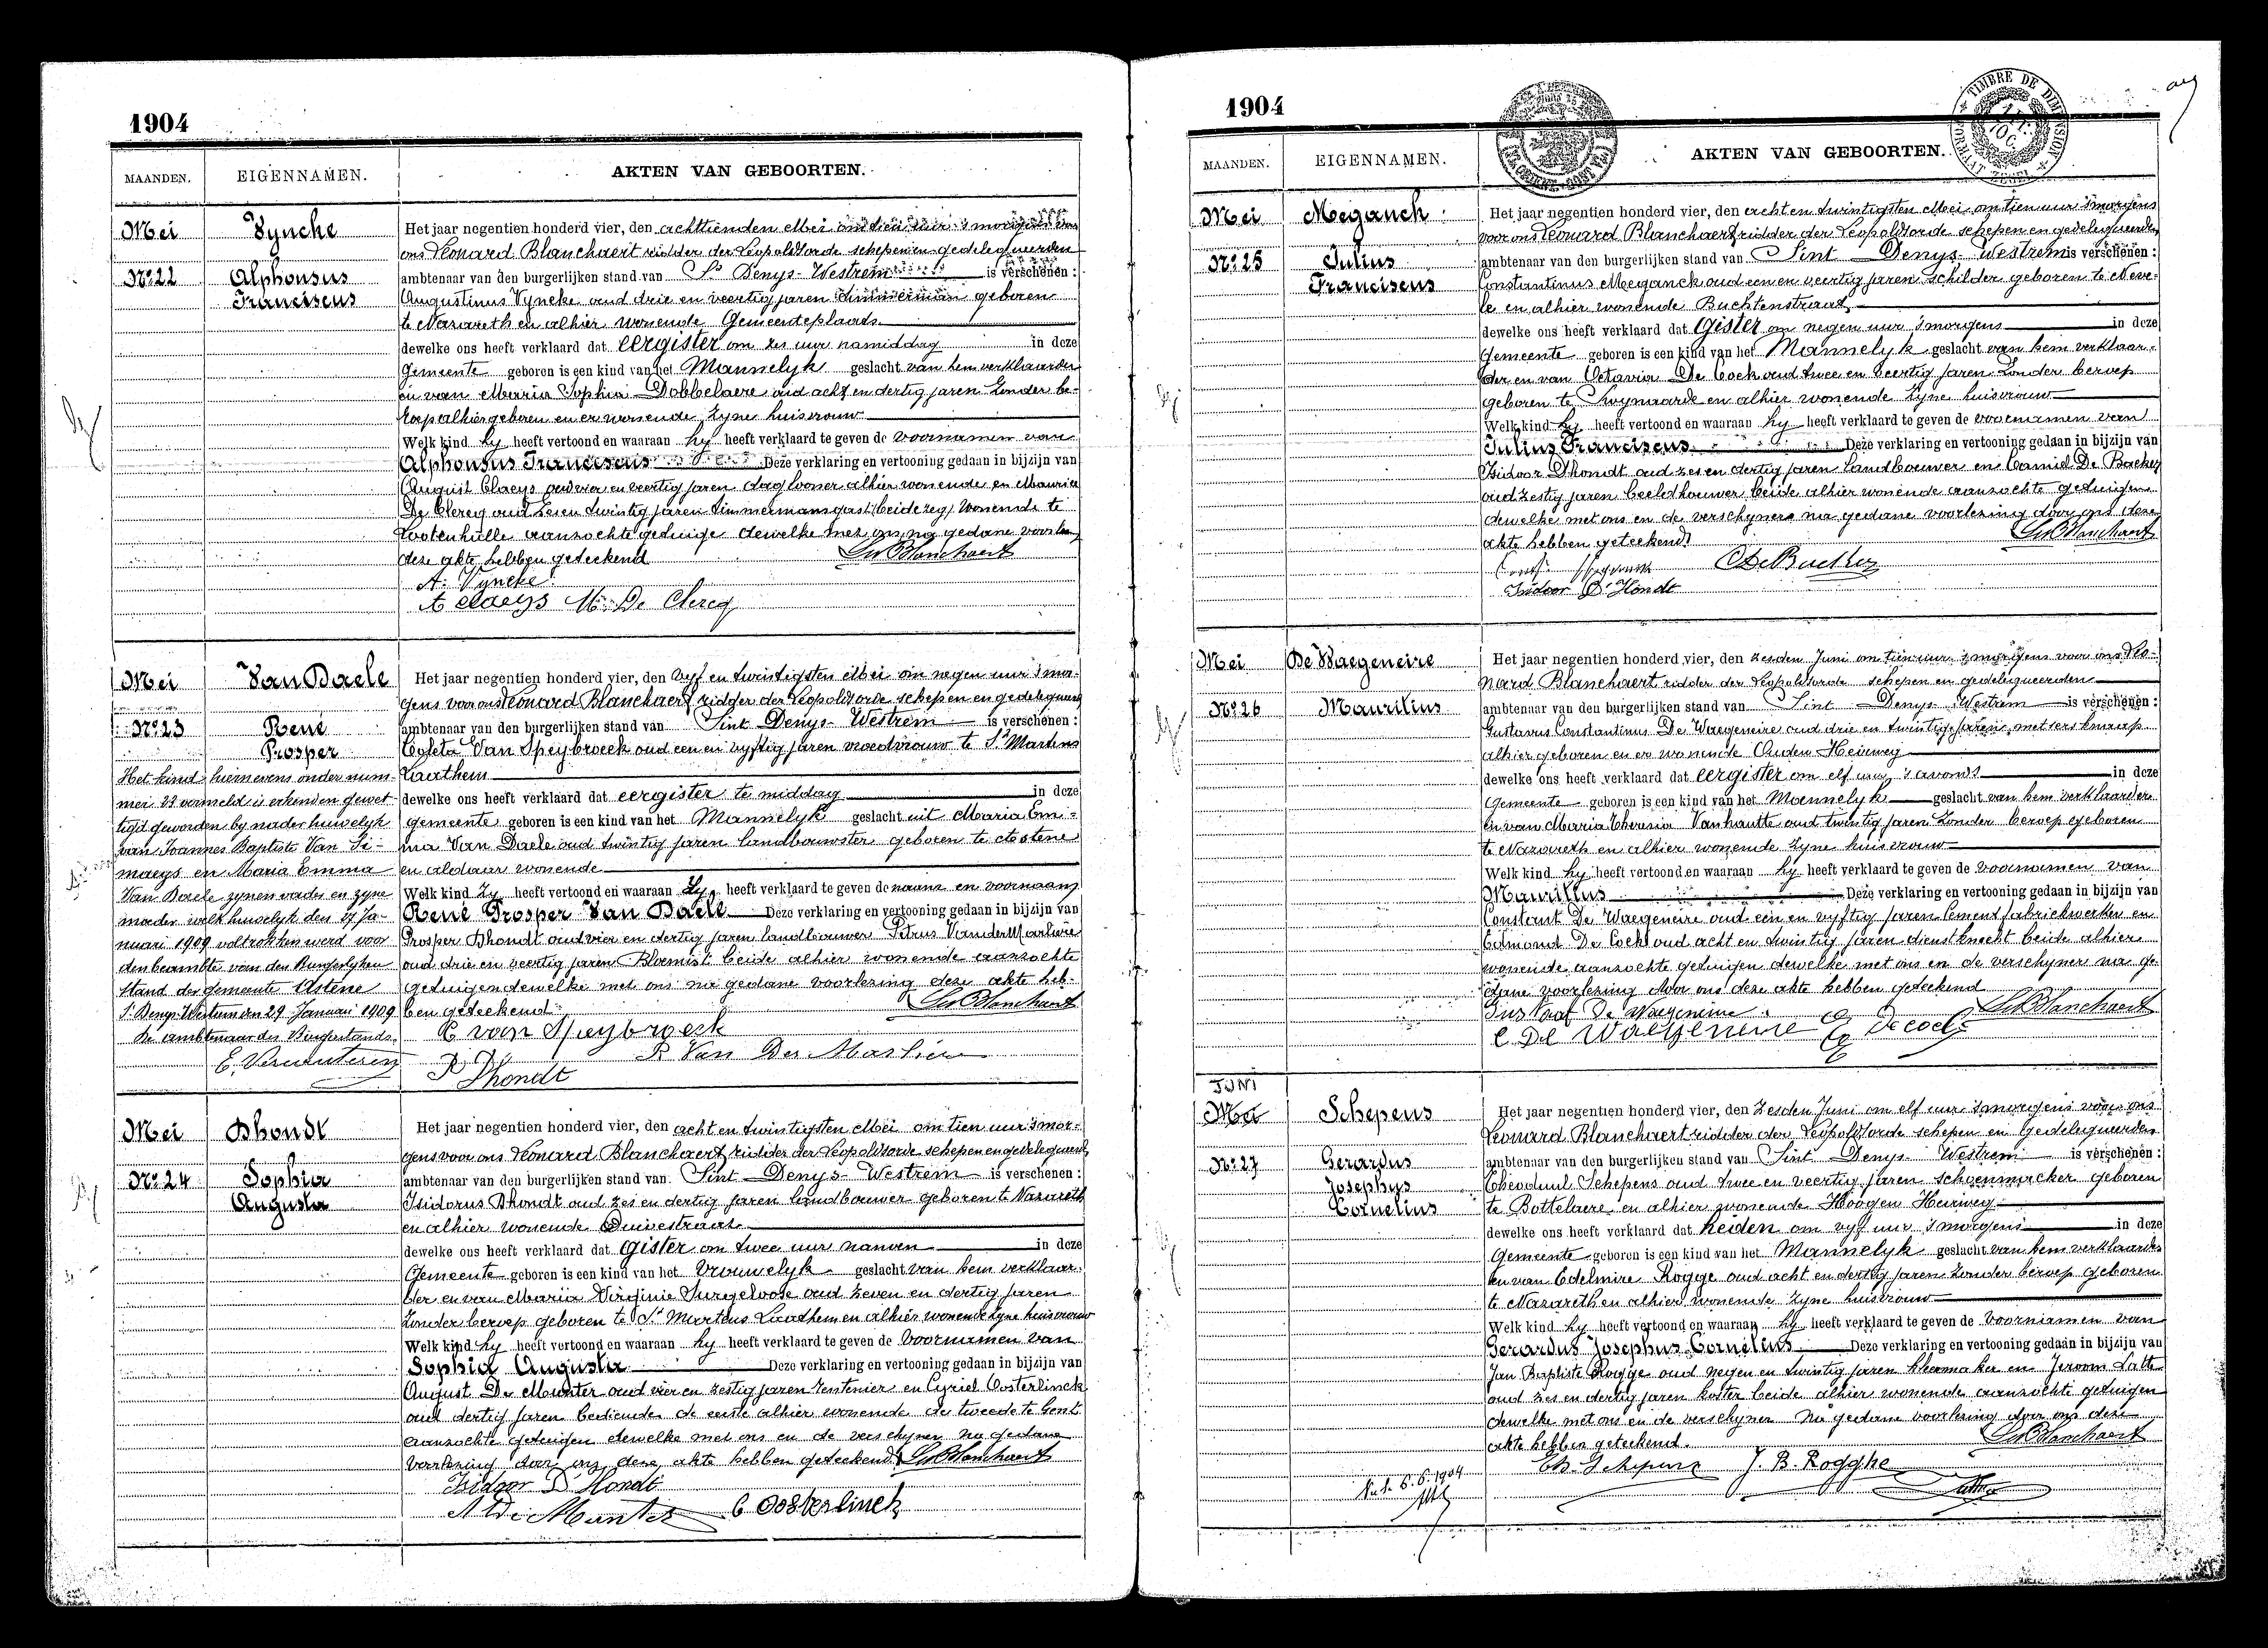 1904
MAANDEN. EIGENNAMEN. AKTEN VAN GEBOORTEN.
Mei Vyncke
Het jaar negentien honderd vier, den achttienden Mei om tien uur 's morgens voor
ons Leonard Blanchaert ridder der Leopoldsorde schepen en gedelegueerden
Nº 22 Alphonsus ambtenaar van den burgerlijken stand van St Denys-Westrem is verschenen :
Franciscus Augustinus Vyncke oud drie en veertig jaren timmerman geboren
te Nazareth en alhier wonende Gemeenteplaats
dewelke ons heeft verklaard dat eergister om zes uur namiddag in deze
Gemeente geboren is een kind van het Mannelyk geslacht van hem verklaarder
en van Maria Sophia Dobbelaere oud acht en dertig jaren zonder be-
roep alhier geboren en er wonende zyne huisvrouw
Welk kind hy heeft vertoond en waaraan hy heeft verklaard te geven de voornamen van
Alphonsus Franciscus Deze verklaring en vertooning gedaan in bijzijn van
August Claeys oud vier en veertig jaren daglooner alhier wonende en Maurice
De Clercq oud zes en twintig jaren timmermansgast wonende te
Lootenhulle aanzochte getuige dewelke met ons na gedane voorlezing
deze akte hebben geteekend
LsBlanchaert
A. Vyncke
A Claeys M. De Clercq
Mei Van Daele
Het jaar negentien honderd vier, den vyf en twintigsten Mei om negen uur 's mor-
gens voor ons Leonard Blanchaert ridder der Leopoldsorde schepen en gedelegueerd
Nº 23 René ambtenaar van den burgerlijken stand van Sint Denys-Westrem is verschenen :
Prosper Coleta Van Speybroeck oud een en vyftig jaren vroedvrouw te St Martens
Laethem
dewelke ons heeft verklaard dat eergister te middag in deze
gemeente geboren is een kind van het Mannelyk geslacht uit Maria Em-
ma Van Daele oud twintig jaren landbouwster geboren te Astene
en aldaar wonende
Welk kind zy heeft vertoond en waaraan zy heeft verklaard te geven de naam en voornaam
René Prosper Van Daele Deze verklaring en vertooning gedaan in bijzijn van
Prosper Dhondt oud vier en dertig jaren landbouwer Petrus VanderMarliere
oud drie en veertig jaren Bloemist beide alhier wonende aanzochte
getuigen dewelke met ons na gedane voorlezing deze akte heb-
ben geteekend
LsBlanchaert
C van Speybroeck
P. Van Der Marliere
P Dhondt
Het kind hiernevens onder num-
mer 23 vermeld is erkend en gewet-
tigd geworden by nader huwelyk
van Joannes Baptiste Van Si-
maeys en Maria Emma
Van Daele zynen vader en zyne
moeder welk huwelyk den 27 Ja-
nuari 1909 voltrokken werd voor
den beambte van den Burgerlyken
Stand der Gemeente Astene
St Denys-Westrem den 29 Januari 1909
De ambtenaar des Burgerstands
Mei Dhondt
Het jaar negentien honderd vier, den acht en twintigsten Mei om tien uur 's mor-
gens voor ons Leonard Blanchaert ridder der Leopoldsorde schepen en gedelegueerd
Nº 24 Sophia ambtenaar van den burgerlijken stand van Sint Denys-Westrem is verschenen :
Augusta Isidorus Dhondt oud zes en dertig jaren landbouwer geboren te Nazareth
en alhier wonende Duivestraat
dewelke ons heeft verklaard dat gister om twee uur namen in deze
Gemeente geboren is een kind van het Vrouwelyk geslacht van hem verklaar-
der en van Maria Virginie Surgeloose oud zeven en dertig jaren
zonder beroep geboren te St Martens Laethem en alhier wonende zyne huisvrouw
Welk kind hy heeft vertoond en waaraan hy heeft verklaard te geven de voornamen van
Sophia Augusta Deze verklaring en vertooning gedaan in bijzijn van
August De Munter oud vier en zestig jaren rentenier en Cyriel Oosterlinck
oud dertig jaren bediende de eerste alhier wonende de tweede te Gent
aanzochte getuigen dewelke met ons en de verschyner na gedane
voorlezing door ons deze akte hebben geteekend LsBlanchaert
Isidoor D'Hondt
A De Munter C Oosterlinck
1904
TIMBRE DE DIMENSION
MAANDEN. EIGENNAMEN. AKTEN VAN GEBOORTEN.
Mei Meganck
Het jaar negentien honderd vier, den acht en twintigsten Mei om tien uur 's morgens
voor ons Leonard Blanchaert ridder der Leopoldsorde schepen en gedelegueerden
Nº 25 Julius ambtenaar van den burgerlijken stand van Sint Denys-Westrem is verschenen :
Franciscus Constantinus Meganck oud een en veertig jaren schilder geboren te Neve-
le en alhier wonende Buchtenstraat
dewelke ons heeft verklaard dat gister om negen uur 's morgens in deze
Gemeente geboren is een kind van het Mannelyk geslacht van hem verklaar-
der en van Octavia De Cock oud twee en veertig jaren zonder beroep
geboren te Swynaarde en alhier wonende zyne huisvrouw
Welk kind hy heeft vertoond en waaraan hy heeft verklaard te geven de voornamen van
Julius Franciscus Deze verklaring en vertooning gedaan in bijzijn van
Isidoor Dhondt oud zes en dertig jaren landbouwer en Camiel De Backer
oud zestig jaren beeldhouwer beide alhier wonende aanzochte getuigen
dewelke met ons en de verschyner na gedane voorlezing door ons deze
akte hebben geteekend
LsBlanchaert
Isidoor D'Hondt
Mei De Waegeneire
Het jaar negentien honderd vier, den zesden Juni om tien uur 's morgens voor ons Leo-
nard Blanchaert ridder der Leopoldsorde schepen en gedelegueerden
Nº 26 Maurilius ambtenaar van den burgerlijken stand van Sint Denys Westrem is verschenen :
Gustavus Constantinus De Waegeneire oud drie en twintig jaren metsersknaap
alhier geboren en er wonende Ouden Heirweg
dewelke ons heeft verklaard dat eergister om elf uur 's avonds in deze
Gemeente geboren is een kind van het Mannelyk geslacht van hem verklaarder
en van Maria Theresia Vanhautte oud twintig jaren zonder beroep geboren
te Nazareth en alhier wonende zyne huisvrouw
Welk kind hy heeft vertoond en waaraan hy heeft verklaard te geven de voornamen van
Maurillus Deze verklaring en vertooning gedaan in bijzijn van
Constant De Waegeneire oud een en vyftig jaren Cementfabriekwerker en
Edmond De Cock oud acht en twintig jaren dienstknecht beide alhier
wonende aanzochte getuigen dewelke met ons en de verschyner na ge-
dane voorlezing door ons deze akte hebben geteekend
Gustaaf De Waegeneire LsBlanchaert
C. De Waegeneire E Decock
JUNI
Mei Schepens
Het jaar negentien honderd vier, den zesden Juni om elf uur 's morgens voor ons
Leonard Blanchaert ridder der Leopoldsorde schepen en Gedelegueerden
Nº 27 Gerardus ambtenaar van den burgerlijken stand van Sint Denys-Westrem is verschenen :
Josephus Theoduul Schepens oud twee en veertig jaren schoenmaker geboren
Cornelius te Bottelaere en alhier wonende Hoogen Heirweg
dewelke ons heeft verklaard dat heiden om vyf uur 's morgens in deze
Gemeente geboren is een kind van het Mannelyk geslacht van hem verklaarder
en van Edelmire Rogge oud acht en dertig jaren zonder beroep geboren
te Nazareth en alhier wonende zyne huisvrouw
Welk kind hy heeft vertoond en waaraan hy heeft verklaard te geven de voornamen van
Gerardus Josephus Cornelius Deze verklaring en vertooning gedaan in bijzijn van
Jan Baptiste Rogge oud negen en twintig jaren kleermaker en Jeroom Latte
oud zes en dertig jaren koster beide alhier wonende aanzochte getuigen
dewelke met ons en de verschyner na gedane voorlezing door ons deze
akte hebben geteekend.
LsBlanchaert
Th. Schepens J. B. Rogghe
6.6.1904